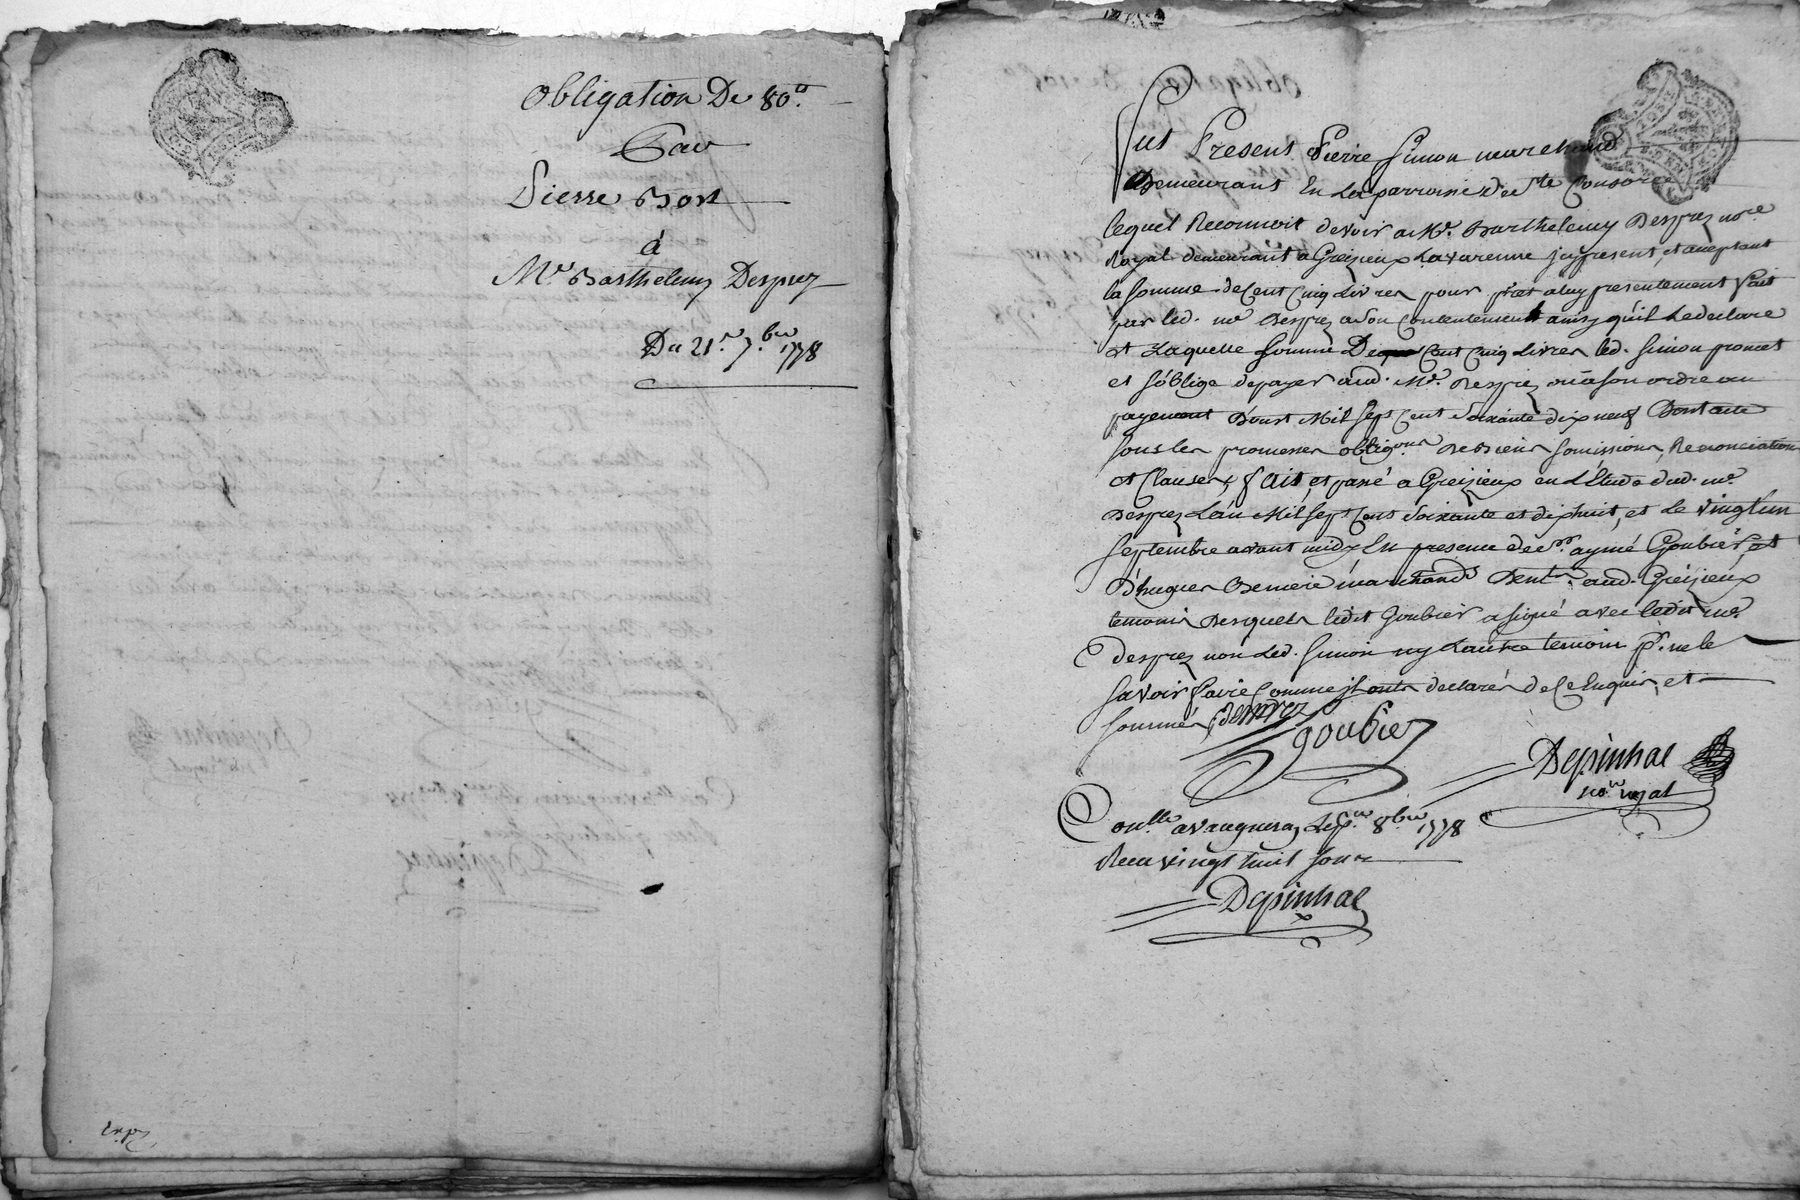 Obligation De 80.ᵗᵗ
Par
Pierre Bost
à
Mᵉ Barthelemy Desprez
Du 21.ᵉ 7.bre 1778
Exp
Fut Present Pierre Simon marchand
Demeurant En La parroisse de Ste Consorce
lequel Reconnoit devoir a Me. Barthelemy Desprez nore
Royal demeurant a Grezieux Lavarenne jcy present, et acceptant
la somme de Cent Cinq Livres pour prêt a luy presentement fait
par led. me Desprez a son Contentement ainsy qu'il Le declare
et Laquelle somme De Cent Cinq Livres led. Simon promet
et s'oblige de payer aud. Me. Desprez ou a son ordre au
payement Daoust Mil Sept Cent Soixante dix neuf Dont acte
sous les promesses oblig.ons de biens somissions, Renonciations
et Clauses, fait, et passé a Greizieux en L'Etude dud. me.
Desprez L'an Mil sept Cent Soixante et dixhuit, et Le vingtun
septembre avant midy En presence de srs. aymé Goubier, et
D'hugues marchands Dent.s aud. Greizieux
temoins Desquels ledit Goubier a signé avec ledit me.
Desprez non Led. Simon ny Lautre temoin pr. ne le
savoir faire Comme jls ont declarés de Ce Enquis, et
sommés Desprez
Goubier
Depinhac
nore royal
Conllé a vaugneray Le pr. 8bre 1778
Recu vingt huit sous
Depinhac